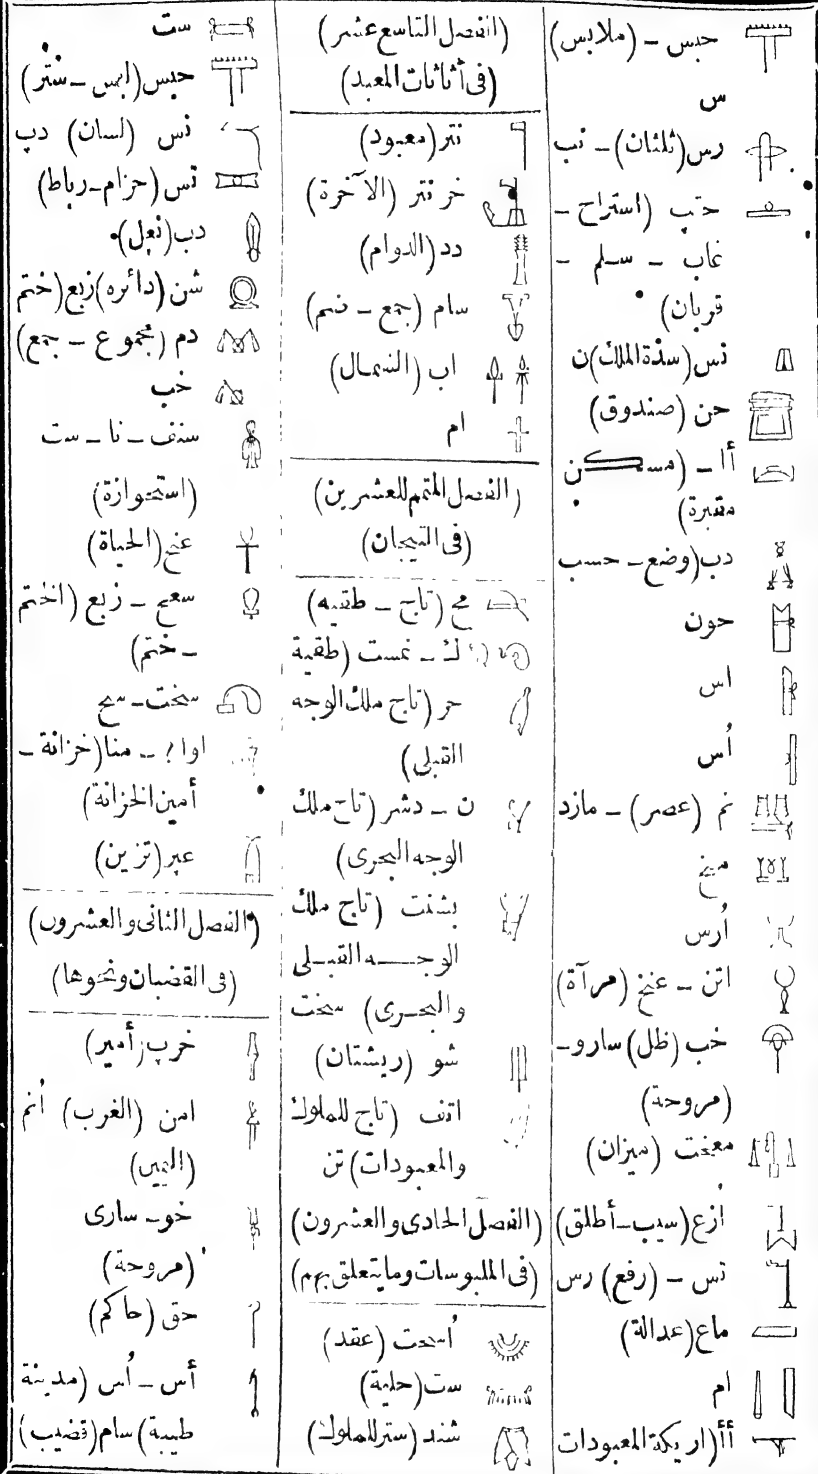 حبس – (ملابس)
س
رس (ثلثان) – نب
حتب (استراح –
غاب – سلم –
قربان)
نس (سدة الملك) ن
حن (صندوق)
أا – (مسكن
مقبرة)
دب (وضع – حسب
حون
اس
أس
نم (عصر) – مازد
منخ
أرس
اتن – عنخ (مرآة)
خب (ظل) سارو –
(مروحة)
معخت (ميزان)
أزع (سيب – أطلق)
تس – (رفع) رس
ماع (عدالة)
ام
أأ (اريكة المعبودات
(الفصل التاسع عشر)
(فى أثاثات المعبد)
نتر (معبود)
خر نتر (الآخرة)
دد (الدوام)
سام (جمع – ضم)
اب (الشمال)
ام
(الفصل المتمم للعشرين)
(فى التيجان)
مح (تاج – طقيه)
ك – نمست (طقية
حر (تاج ملك الوجه
القبلى)
ن – دشر (تاج ملك
الوجه البحرى)
بشنت (تاج ملك
الوجه القبلى
والبحرى) سخت
شو (ريشتان)
اتف (تاج للملوك
والمعبودات) تن
(الفصل الحادى والعشرون)
(فى الملبوسات وما يتعلق بهم)
أسخت (عقد)
ست (حلية)
شند (ستر للملوك)
ست
حبس (ابس – سنتر)
نس (لسان) دب
تس (حزام – رباط)
دب (نعل)
شن (دائره) زبع (ختم
دم (مجموع – جمع)
خب
سنف – نا – ست
عنخ (الحياة)
سعح – زبع (الختم
– ختم)
سخت – سح
اوا؟ – منا (خزانة –
أمين الخزانة)
عبر (تزين)
(الفصل الثانى والعشرون)
(فى القضبان ونحوها)
خرب (أمير)
امن (الغرب) أنم
(اليمين)
خو – سارى
(مروحة)
حق (حاكم)
أس – أس (مدينة
طيبة) سام (قضيب)